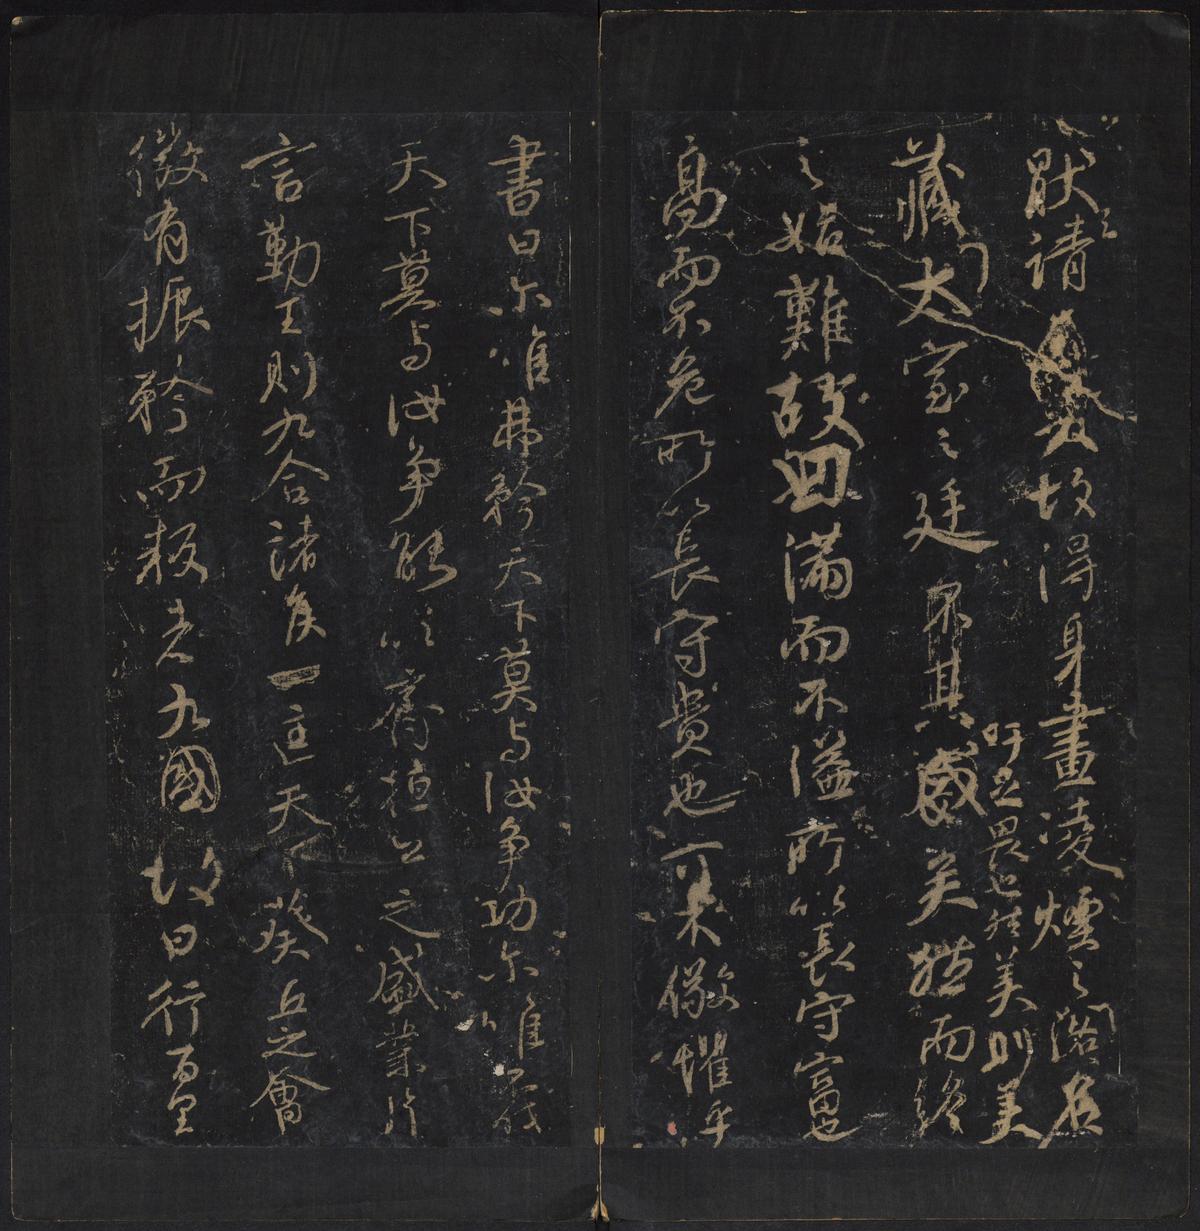 猒之請又故得身畫凌煙之閣名
吁足畏也然美則美
藏太室之廷其盛矣然而終
之始難故曰滿而不溢所以長守富也
高而不危所以長守貴也可不儆懼乎
書曰尔唯弗矜天下莫与汝爭功尔唯不伐
天下莫与汝爭能以齊桓公之盛業片
言勤王則九合諸侯一匡天下葵丘之會
微有振矜而叛者九國故曰行百里